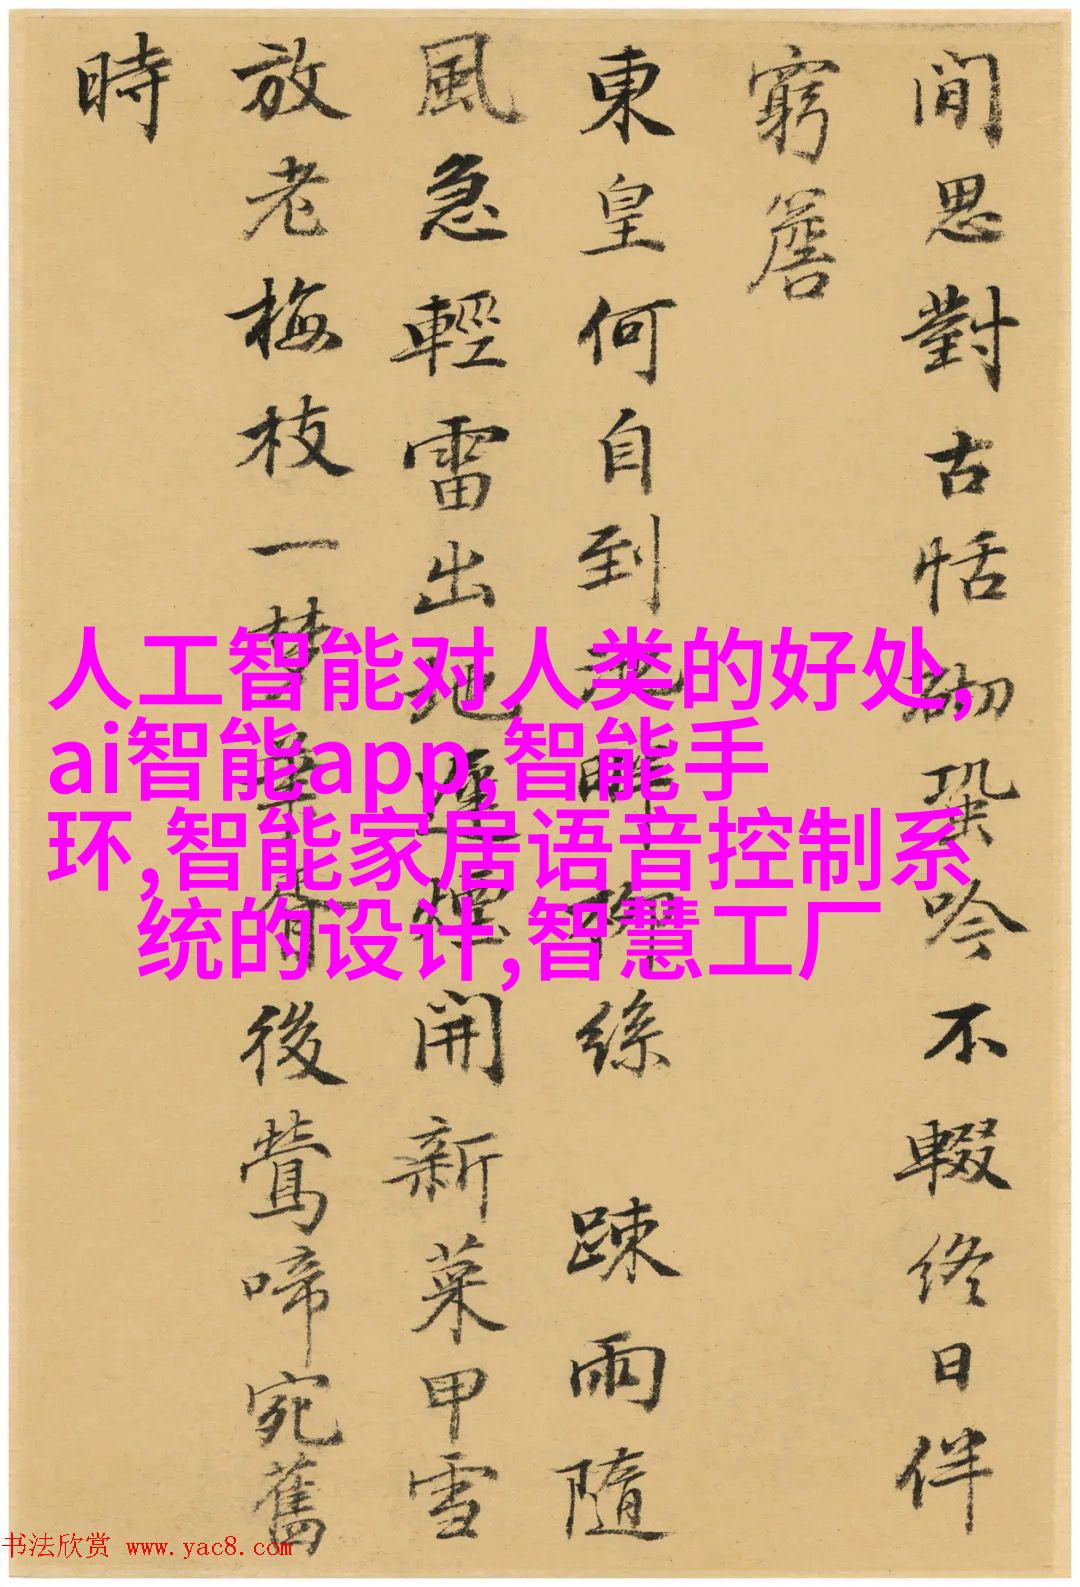 閒思對古恬砌蛩吟不輟終日伴
窮簷
東皇何自到池畔柳絲 踈雨隨
風急輕雷出地遲煙開新菜甲雪
放老梅枝一夢華胥後鶯啼宛舊
時
人工智能对人类的好处,
ai智能app,智能手
环,智能家居语音控制系
统的设计,智慧工厂
书法欣赏 www.yac8.com